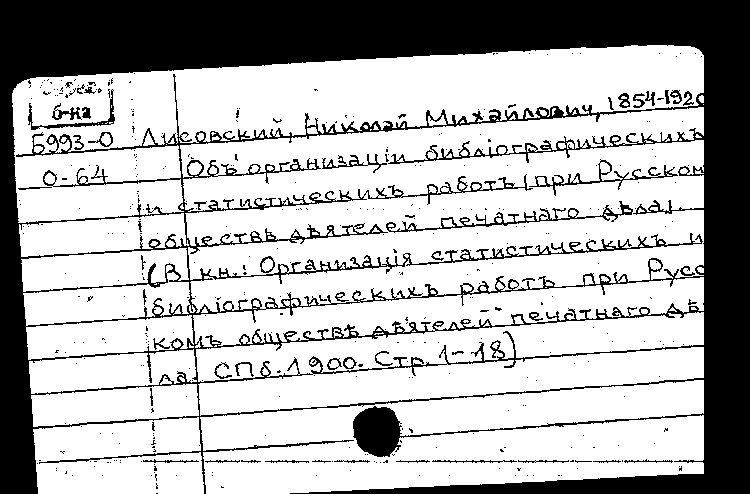 Справ.
б-на
Б993-0 Лисовский, Николай Михайлович, 1854-1920
0-64 Объ организаціи библіографическихъ
и статистическихъ работъ [при Русском
обществѣ дѣятелей печатнаго дѣла].
(В кн.: Организація статистическихъ и
библіографическихъ работъ при Русс
комъ обществѣ дѣятелей печатнаго дѣ
ла. СПб. 1900. Стр. 1-18)